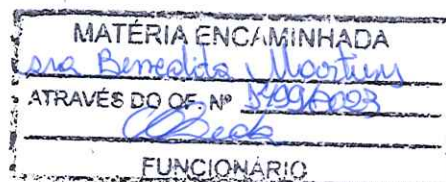 MATÉRIA ENCAMINHADA
sra Benedita Martins
ATRAVÉS DO OF. Nº /2023
FUNCIONÁRIO